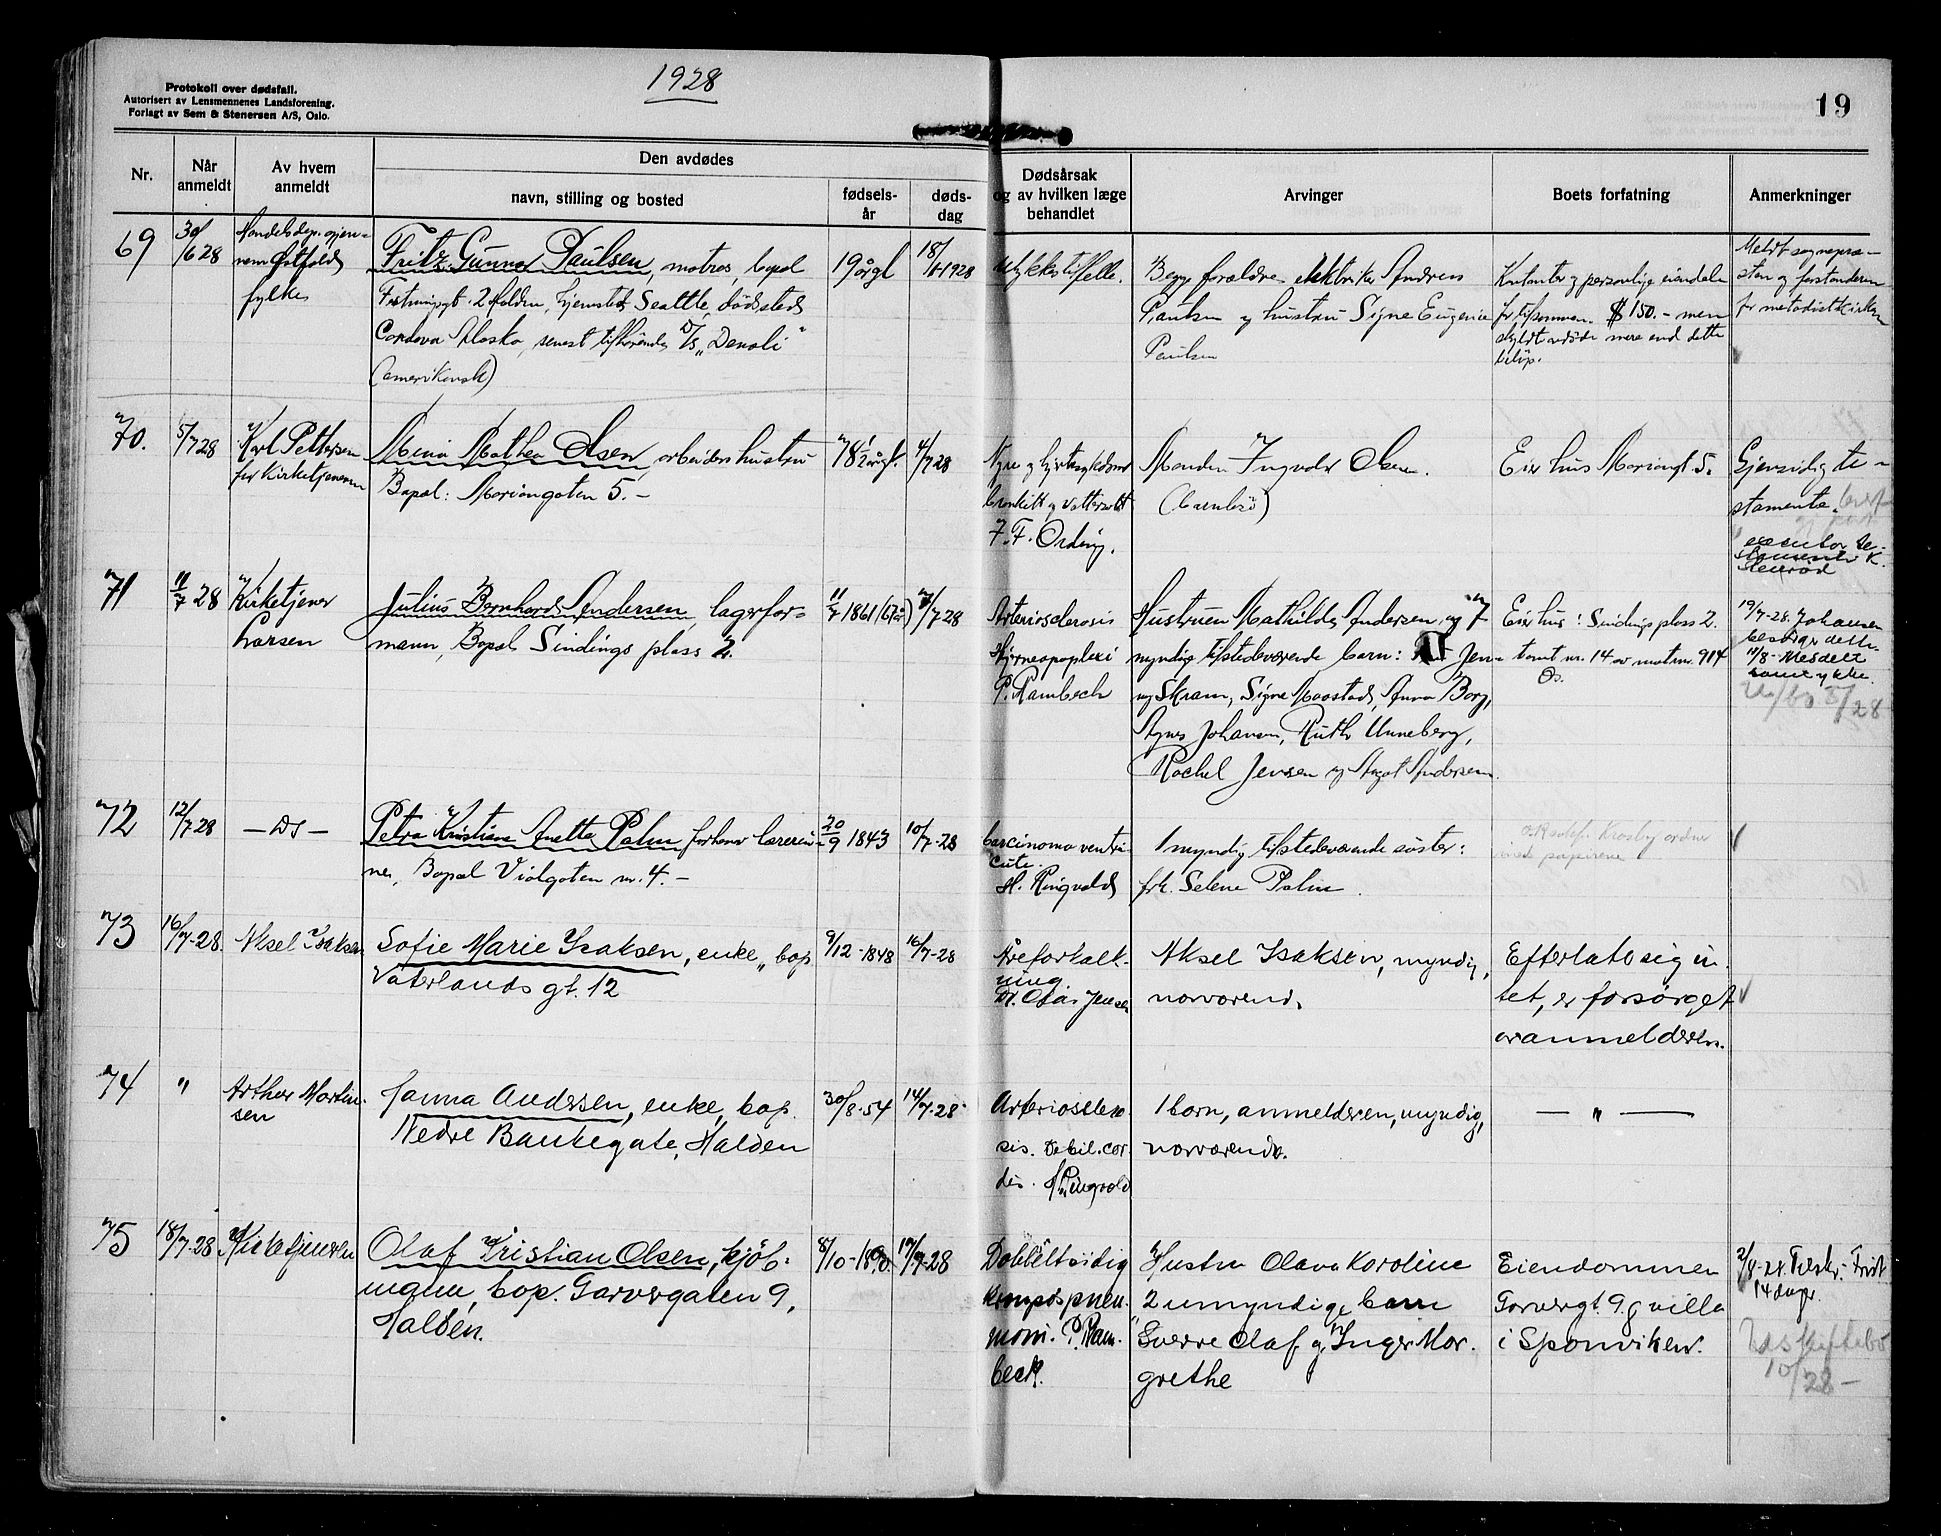 1928
Protokoll over dødsfall.
Autorisert av Lensmennenes Landsforening.
Forlagt av Sem & Stenersen A/S, Oslo.
19
Nr.
Når
anmeldt
Av hvem
anmeldt
Den avdødes
navn, stilling og bosted
fødsels-
år
døds-
dag
Dødsårsak
og av hvilken læge
behandlet
Arvinger
Boets forfatning
Anmerkninger
69
30/6 28
Handelsdep. gjen-
nem Østfold
fylke
Fritz Gunnar Paulsen, matros, bopel
2 Halden, hjemsted Seattle, dødssted
Cordova Alaska, senest tilhørende D/s "Denali"
(amerikansk)
19 årgl
18/ 1928
Ulykkestilfelle.
Begge forældre elektriker Andreas
Paulsen og hustru Signe Eugenie
Paulsen
Kontanter og personlige eiendele
tilsammen $150.- men
skyldte mere end dette
beløp.
Meldt sognepre-
sten og forstanderen
for metodistkirken
70.
5/7 28
Karl Pettersen
for kirketjeneren
Mina Mathea Olsen, arbeiders hustru
Bopæl: Mariangaten 5.-
78 1/2 årgl.
4/7 28
Nyre og hjertesykdom
bronkitt og vattersott
F. Ording.
Manden Ingvald Olsen.
(barnløs)
Eier hus Mariangt 5.
Gjensidig te-
stamente.
executor te-
stamente K.
71
11/7 28
Kirketjener
Larsen
Julius Bernhard Andersen, lagerfor-
mann, Bopæl Sindings plass 2.
11/7 1861 (67 år)
/7-28
Arteriosclerosis
Hjerneapoplexi
P. Rambech
Hustruen Mathilde Andersen og 7
myndige tilstedeværende barn: Jen-
ny Skram, Signe Maastad, Anna Borg,
Agnes Johansen, Ruth Unneberg,
Rachel Jensen og Aagot Andersen.
Eier hus: Sindings plass 2.
tomt nr. 14 av matrnr. 914
Os.
19/7-28. Johansen
besørger dette.
11/8- Meddelt
samtykke.
72
12/7 28
— Ds —
Petra Kristiane Anette Palm forhenv. lærerin-
ne, Bopæl Violgaten nr. 4.-
20/9 1843
10/7-28
Carcinoma ventri-
culi.
H. Ringvold
1 myndig tilstedeværende søster:
frk. Selene Palm.
Krosby ordner
papirene
73
16/7-28.
Aksel Isaksen
Sofie Marie Isaksen, enke, bop
Vaterlands gt. 12
9/12-1848
16/7-28
Åreforkalk-
ning.
Dr. Olav Jensen
Aksel Isaksen, myndig,
nærværende.
Efterlate sig in-
tet, er forsørget
av anmelderen.
74
"
Arthur Martin-
sen
Hanna Andersen, enke, bop.
Nedre Bankegate, Halden
30/8-54
14/7-28
Arteriosclero-
sis. Debil. cor-
dis. H. Ringvold
1 barn, anmelderen, myndig,
nærværende.
— " —
75
18/7-28
Kirketjeneren
Olaf Kristian Olsen, kjøb-
mann, bop. Garvergaten 9,
Halden.
8/10-18
17/7-28
Dobbeltsidig
krupøs pneu-
moni. P. Ram-
beck.
Hustru Olava Karoline
2 umyndige barn
Sverre Olaf og Inger Mar-
grethe
Eiendommen
Garvergt. 9 og villa
i Sponviken.
2/8-28. Tilskr. Frist
14 dager.
Uts skiftebo
10/28-